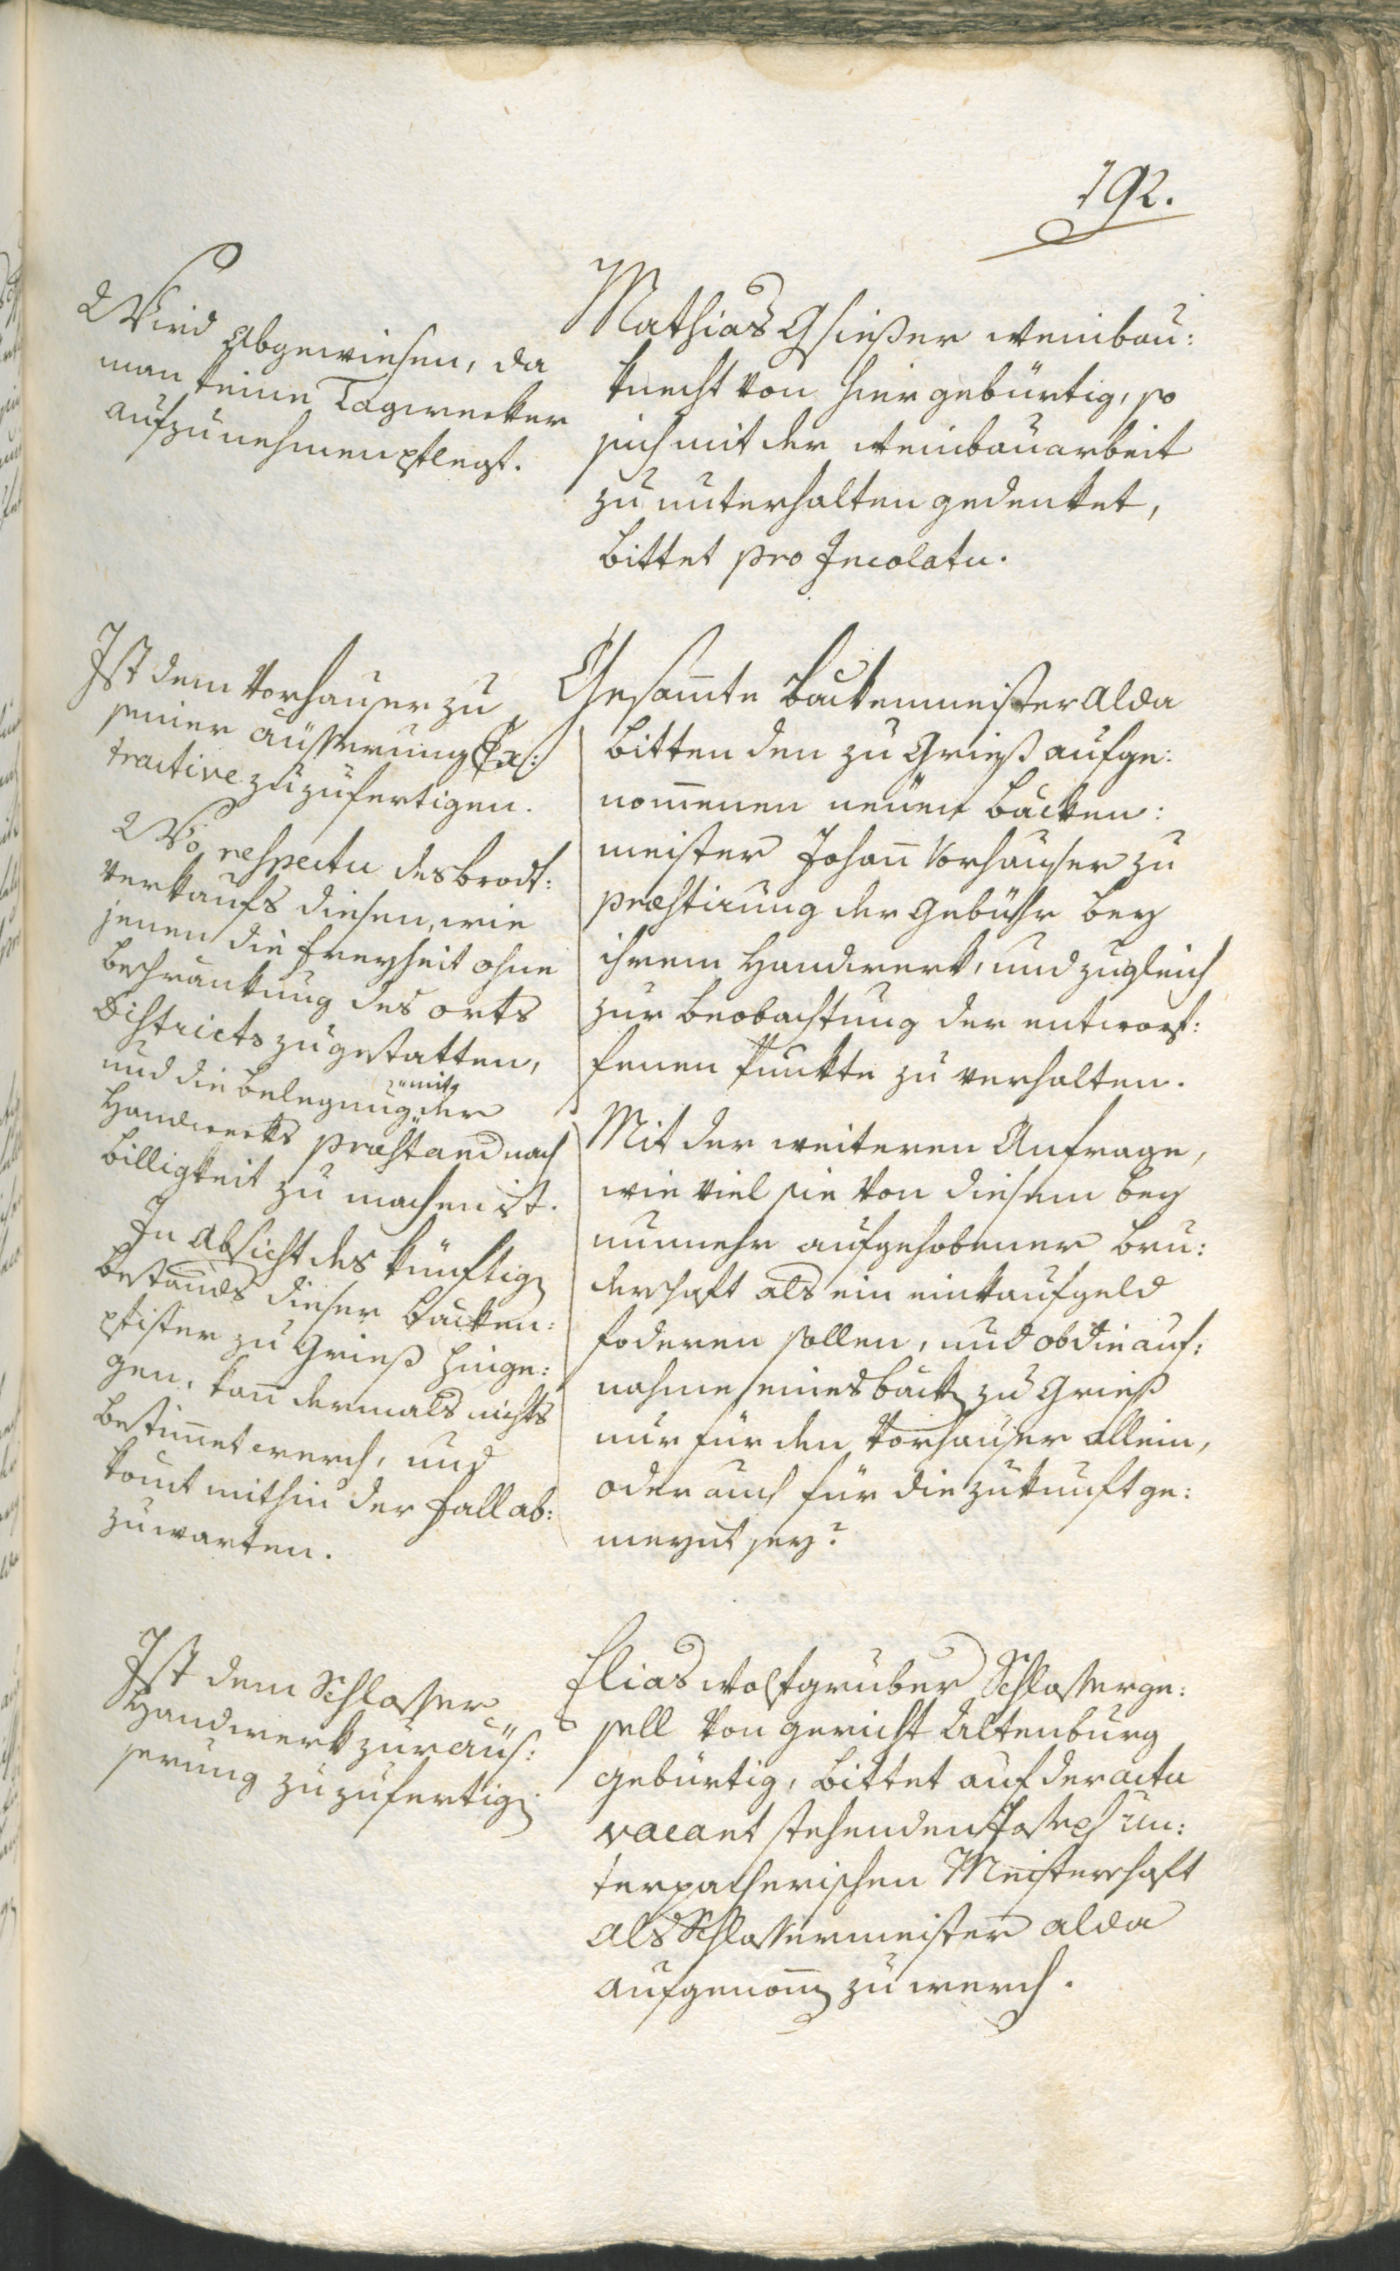 192.
Wird abgewiesen, da
man keine Tagwerker
aufzunehmen pflegt.
Mathias Gsießer weinbau:
knecht von hier gebürtig, so
sich mit der weinbauarbeit
zu unterhalten gedenket,
bittet pro Incolatu.
Ist dem Vorhauser zu
seiner äusserung Ex:
tractive zuzufertigen.
Wo respectu des brodt:
verkaufs diesen, wie
jenen die freyheit ohne
beschrankung des orts
Districts zu gestatten,
und die belegung der
Handwerks præstand nach
billigkeit zu machen ist.
In Absicht des künftig
bestands dieser Backen:
pfister zu Grieß hinge:
gen, kan̄ dermals nichts
bestim̄et werd, und
kom̄t mithin der fall ab:
zuwarten.
Gesam̄te Backenmeister alda
bitten den zu Grieß aufge:
nom̄enen neüen backen:
meister Johan̄ Vorhauser zu
præstirung der gebühr bey
ihrem Handwerk, und zugleich
zur beobachtung der entworf:
fenen Punkte zu verhalten.
Mit der weiteren Anfrage,
wie viel sie von diesem bey
nunmehr aufgehobener bru:
derschaft als ein einkaufgeld
foderen sollen, und ob die auf:
nahme eines back zu Grieß
nur für den Vorhauser allein,
oder auch für die zukunft ge:
meynt sey?
Ist dem Schlosser
Handwerk zur äus:
serung zuzufertig.
Elias Wolfgruber Schlosserge:
sell von gericht Altenburg
gebürtig, bittet auf der actu
vacant stehenden Joseph Un:
terpacherischen Meisterschaft
als Schlossermeister alda
aufgenom̄ zu werd.